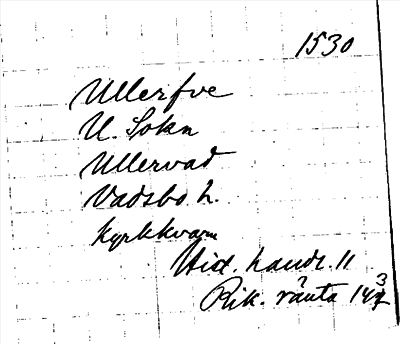 1530
Ullerfve
U. Sokn
Ullervad
Vadsbo h.
kyrkkvarn
Hist. handl. 11
Rik. ränta 143